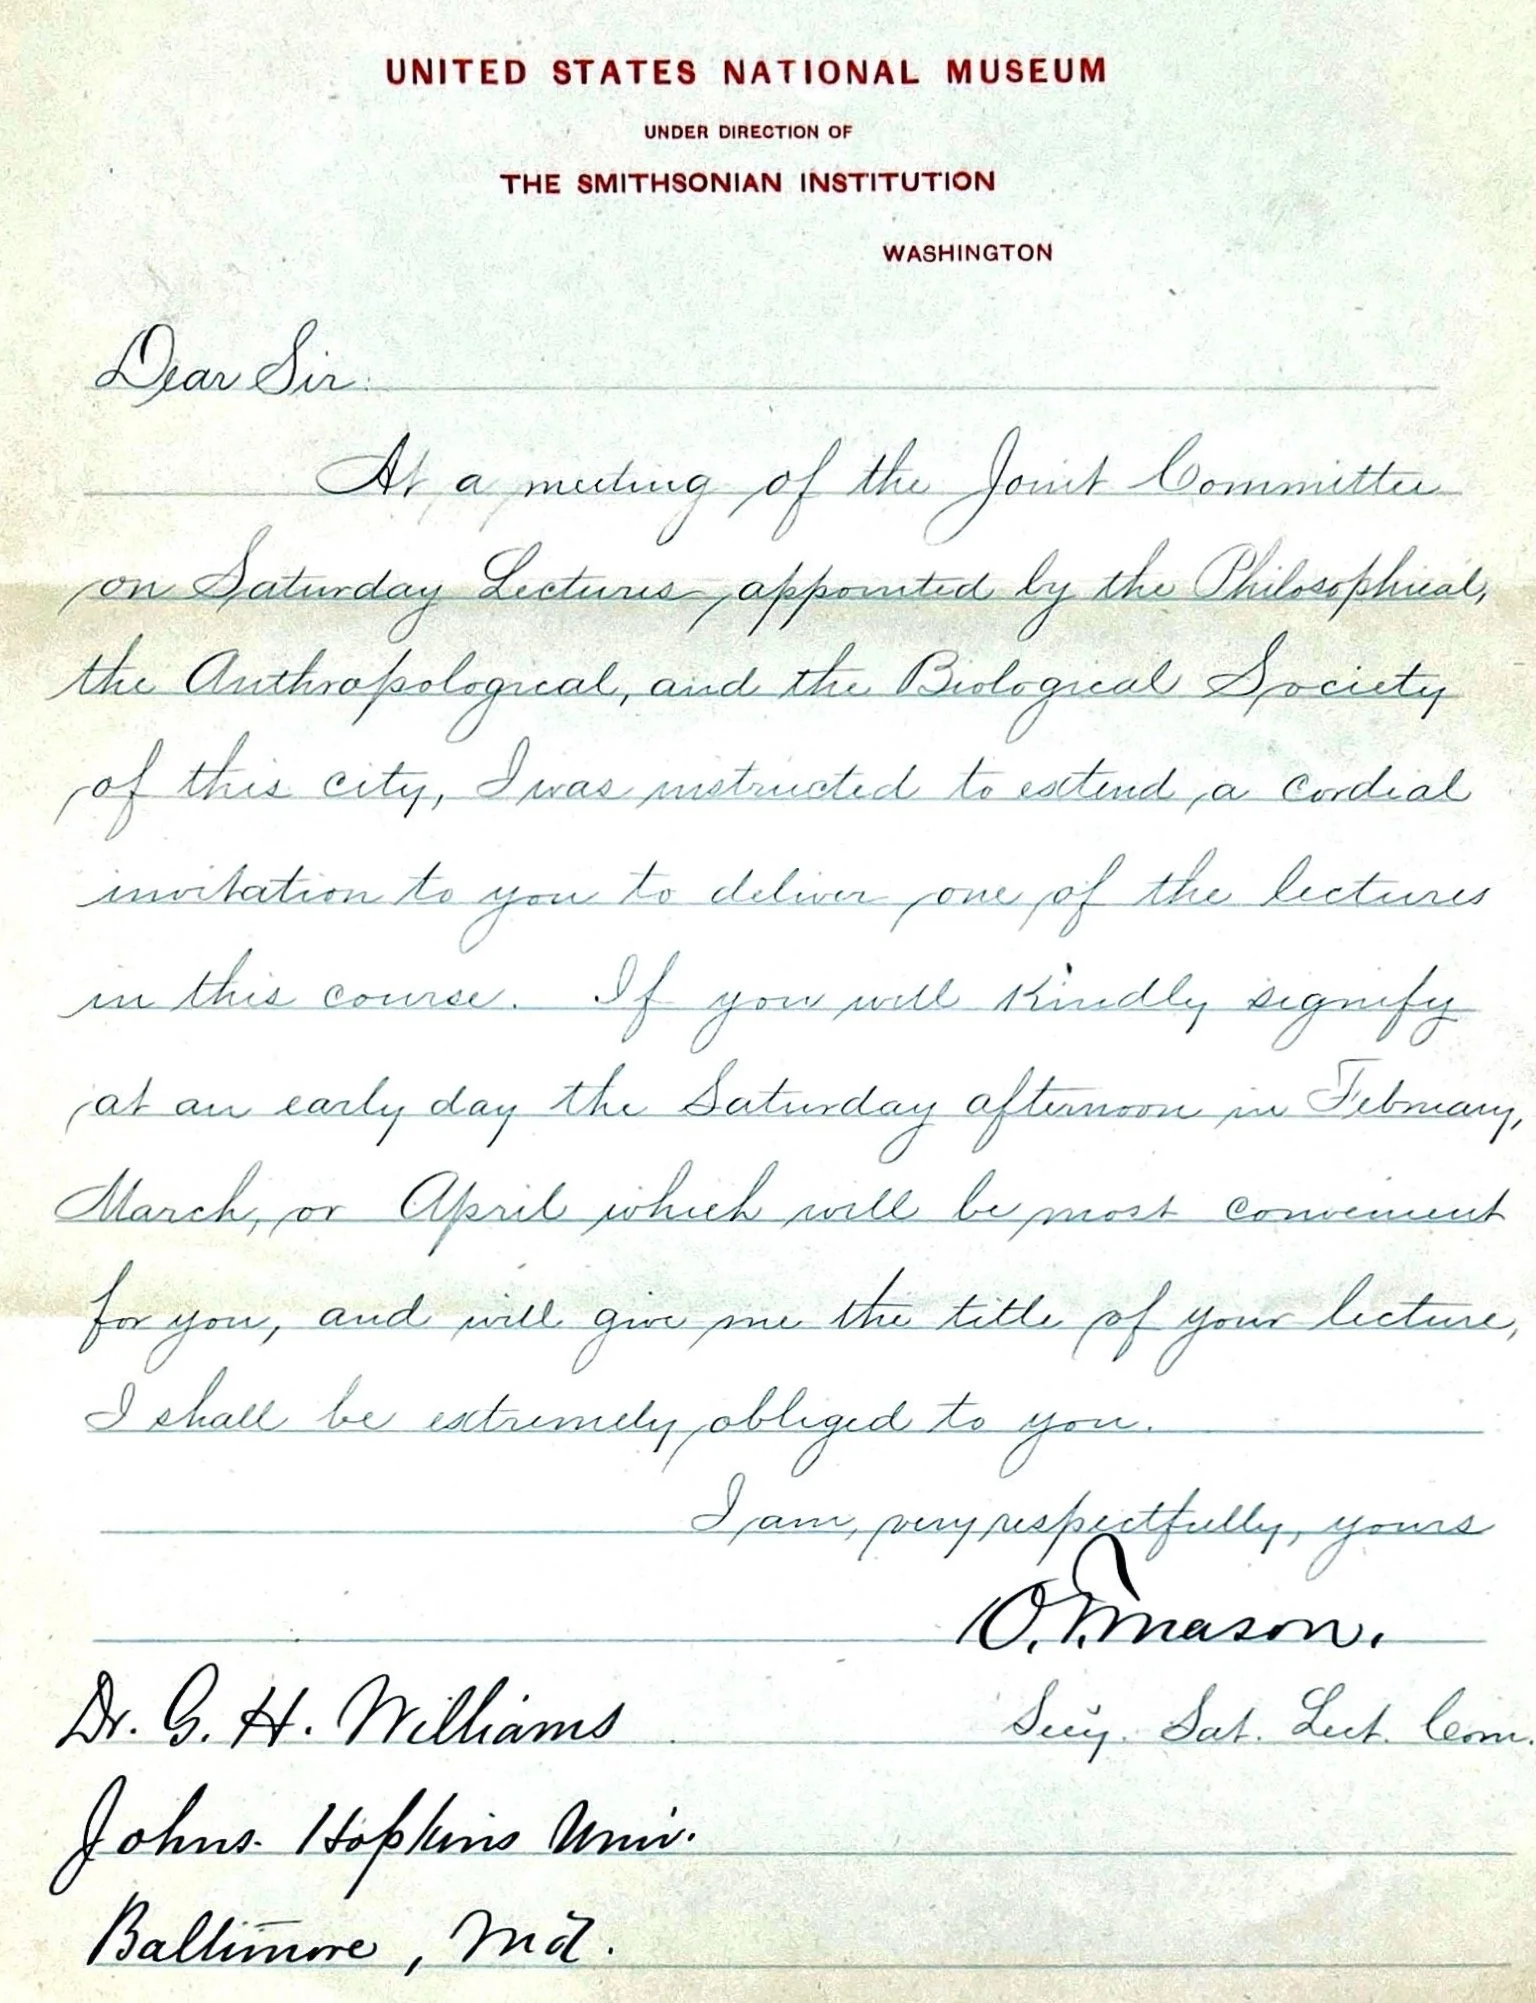 UNITED STATES NATIONAL MUSEUM
UNDER DIRECTION OF
THE SMITHSONIAN INSTITUTION
WASHINGTON
Dear Sir:
At a meeting of the Joint Committee
on Saturday Lectures, appointed by the Philosophical,
the Anthropological, and the Biological Society
of this city, I was instructed to extend a cordial
invitation to you to deliver one of the lectures
in this course. If you will kindly signify
at an early day the Saturday afternoon in February,
March, or April which will be most convenient
for you, and will give me the title of your lecture,
I shall be extremely obliged to you.
I am, very respectfully, yours
O. T. Mason.
Secy. Sat. Lect. Com.
Dr. G. H. Williams
Johns Hopkins Univ.
Baltimore, Md.